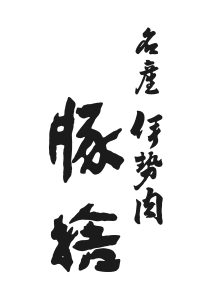 名産伊勢肉
豚捨